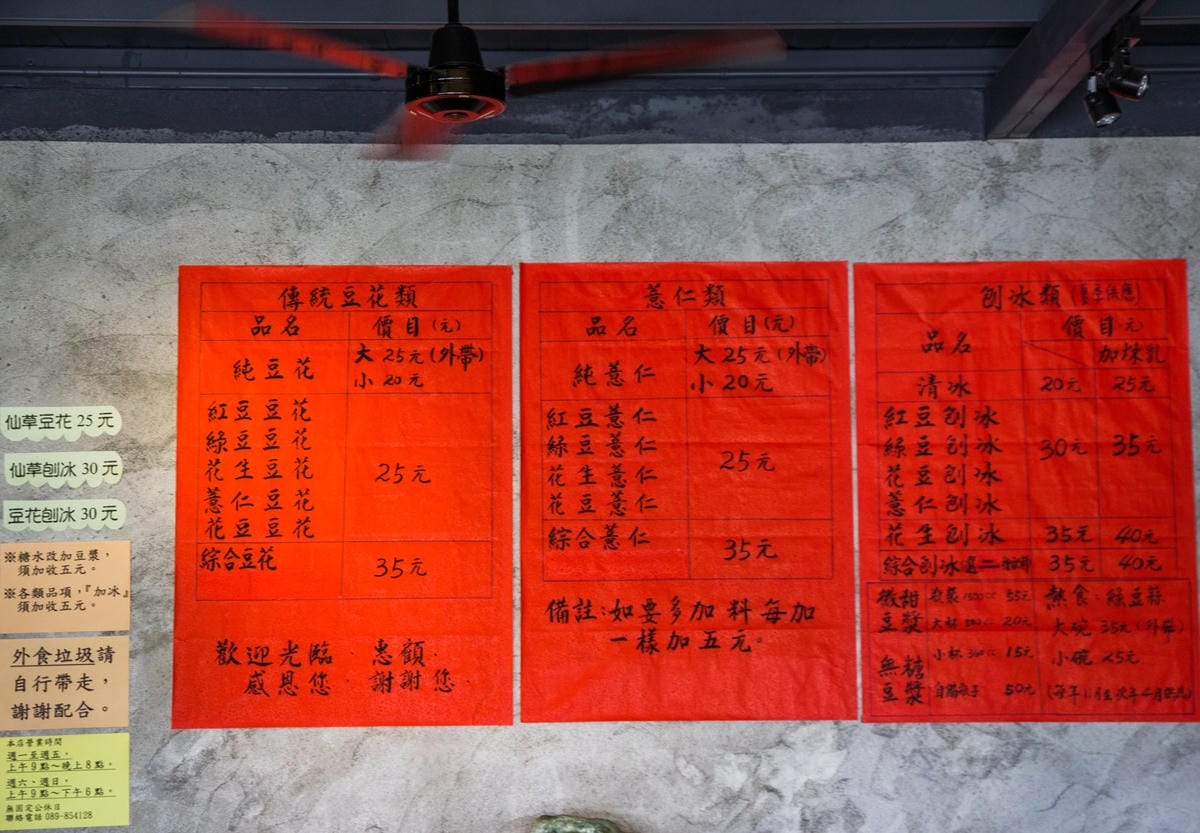 仙草豆花 25 元
仙草刨冰 30 元
豆花刨冰 30 元
※糖水改加豆漿，
須加收五元。
※各類品項，『加冰』
須加收五元。
外食垃圾請
自行帶走，
謝謝配合。
本店營業時間
週一至週五，
上午9點～晚上8點。
週六、週日，
上午9點～下午6點。
無固定公休日
聯絡電話 089-854128
傳統豆花類
品名 價目(元)
純豆花 大 25元(外帶)
小 20元
紅豆豆花
綠豆豆花
花生豆花 25元
薏仁豆花
花豆豆花
綜合豆花 35元
歡迎光臨．惠顧．
感恩您．謝謝您．
薏仁類
品名 價目(元)
純薏仁 大 25元(外帶)
小 20元
紅豆薏仁
綠豆薏仁 25元
花生薏仁
花豆薏仁
綜合薏仁 35元
備註:如要多加料每加
一樣加五元。
刨冰類(夏季供應)
品名 價目元
加煉乳
清冰 20元 25元
紅豆刨冰
綠豆刨冰 30元 35元
花豆刨冰
薏仁刨冰
花生刨冰 35元 40元
綜合刨冰選二 35元 40元
微甜豆漿 1500cc 55元
大杯 500cc 20元
無糖豆漿 小杯 360cc 15元
自備瓶子 50元
熱食:綠豆蒜
大碗 35元(外帶)
小碗 25元
(每年11月至次年4月供應)